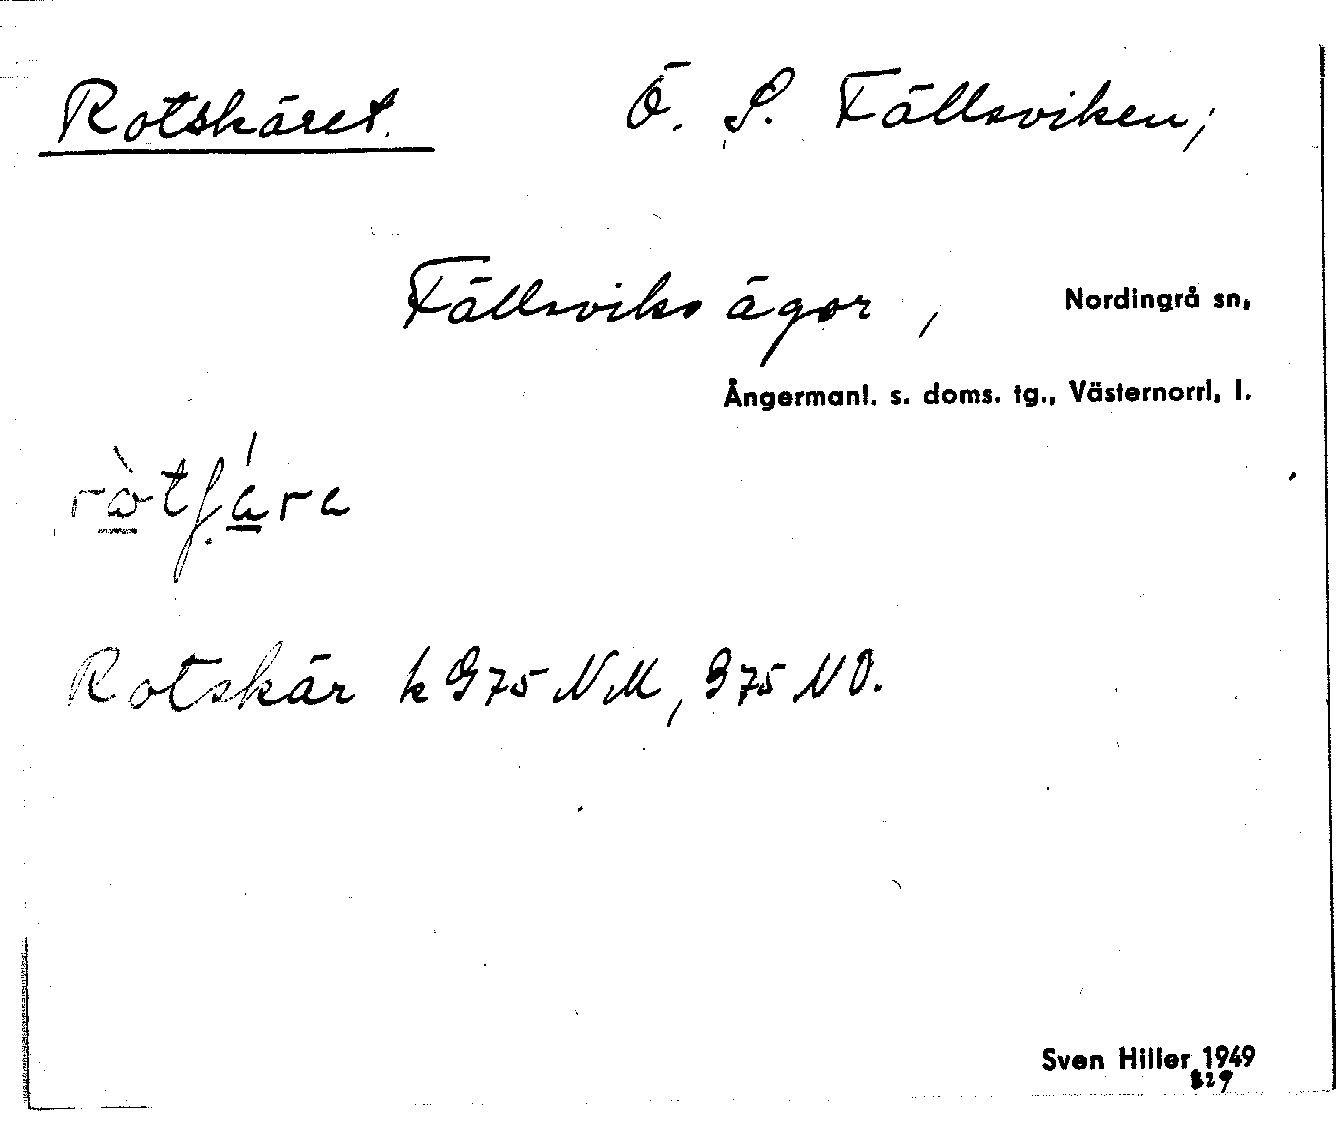 Rotskäret. Ö. S. Fällsviken;
Fällsviks ägor, Nordingrå sn,
Ångermanl. s. doms. tg., Västernorrl. l.
Rotskär k 975 NM, 975 NO.
Sven Hiller 1949